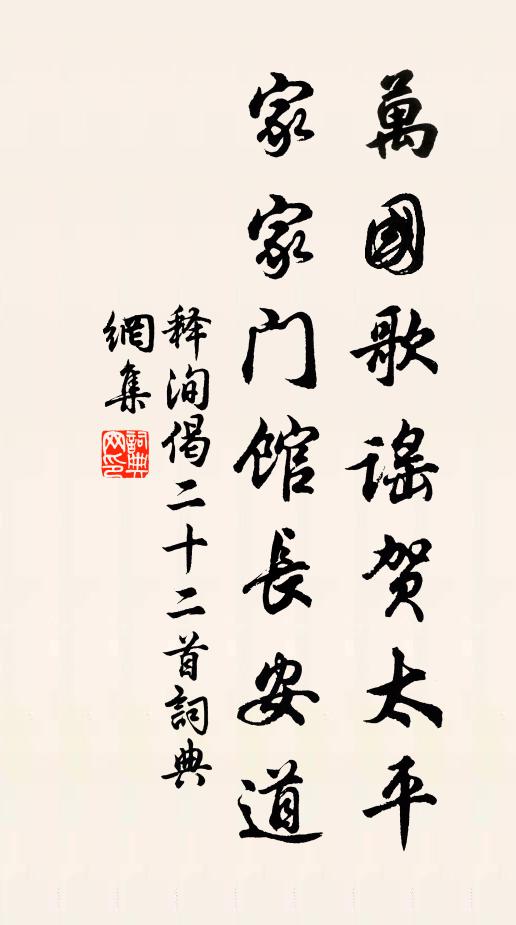 萬國歌謠賀太平
家家门館長安道
释洵偈二十二首詞典
網集
詞典網印